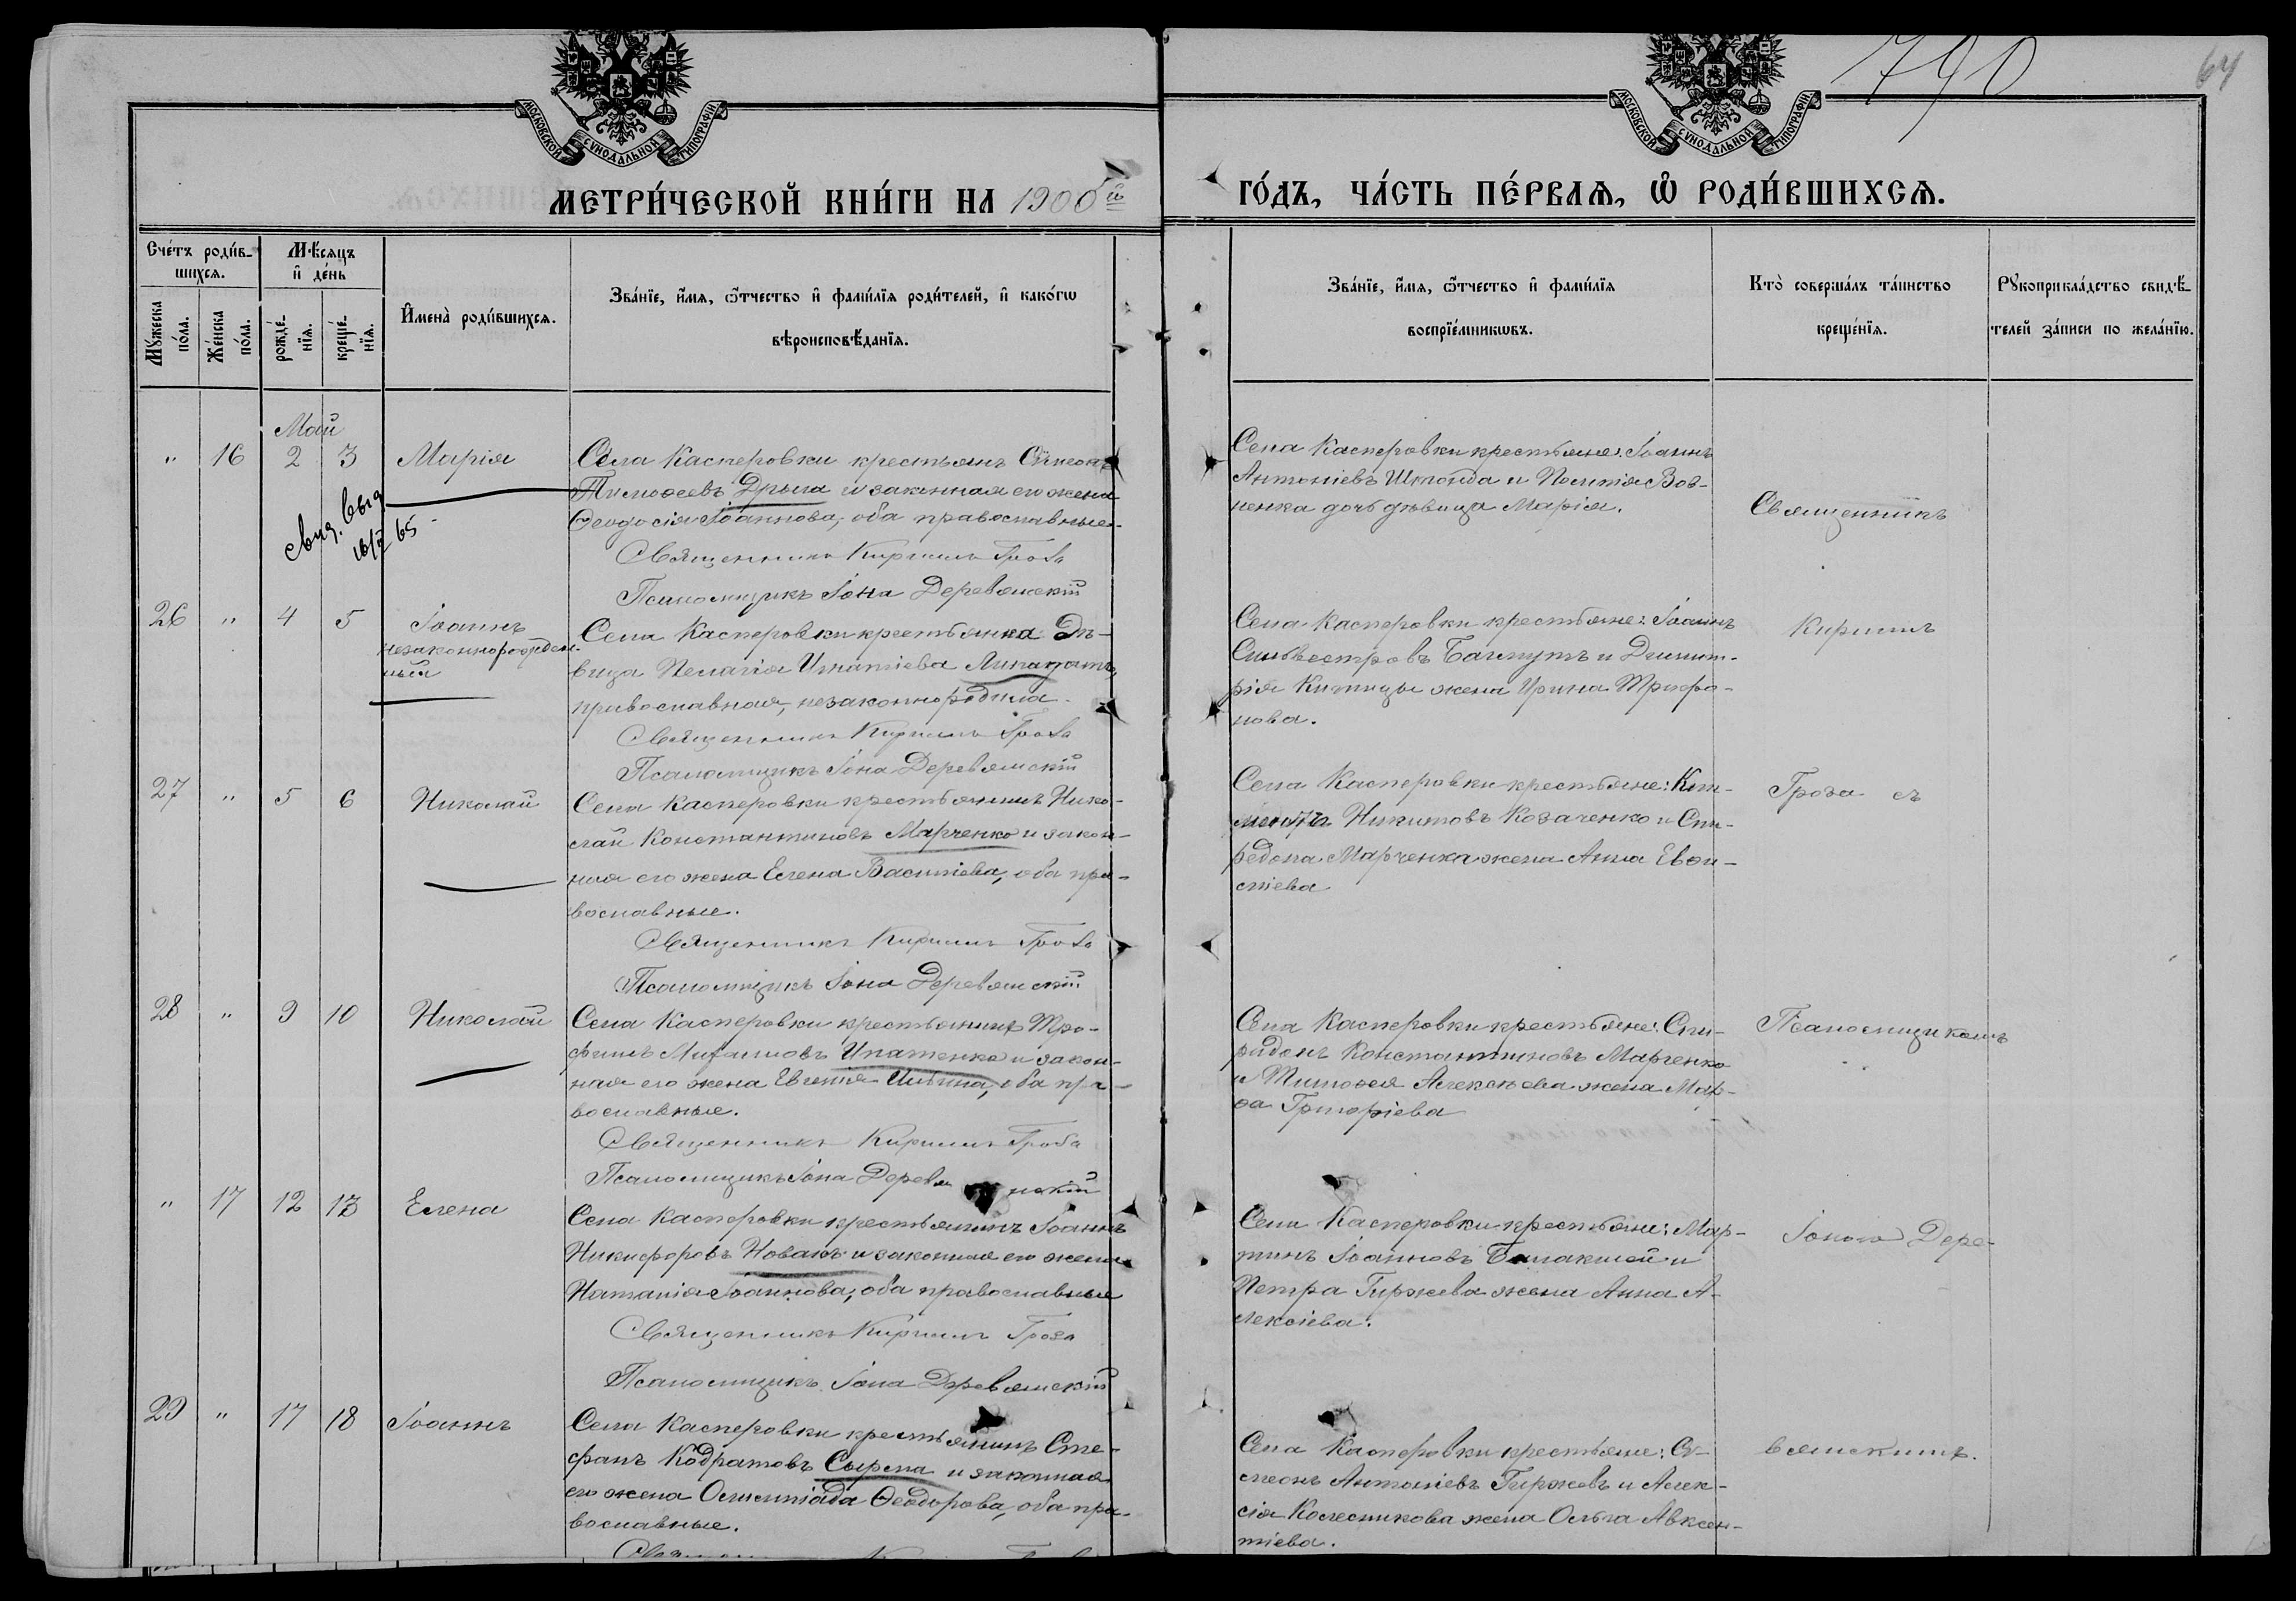 790
64
МОСКОВСКОЙ СѴНОДАЛЬНОЙ ТИПОГРАФІИ
МОСКОВСКОЙ СѴНОДАЛЬНОЙ ТИПОГРАФІИ
МЕТРИ́ЧЕСКОЙ КНИ́ГИ НА 1900й ГО́ДЪ, ЧА́СТЬ ПЕ́РВАѦ, Ѡ҆ РОДИ́ВШИХСѦ.
Сче́тъ роди́в-
шихсѧ.
Мꙋ́жеска по́ла.
Же́нска по́ла.
Мѣ́сѧцъ
и҆ де́нь
рожде́-
нїѧ.
креще́-
нїѧ.
И҆мена̀ роди́вшихсѧ.
Зва́нїе, и҆́мѧ, ѻ҆́тчество и҆ фами́лїѧ роди́телей, и҆ како́гѡ
вѣроисповѣ́данїѧ.
Зва́нїе, и҆́мѧ, ѻ҆́тчество и҆ фами́лїѧ
воспрїе́мникѡвъ.
Кто̀ соверша́лъ та́инство
креще́нїѧ.
Рꙋкоприкла́дство свидѣ́-
телей за́писи по жела́нїю.
Май
" 16 2 3 Марія
Села Касперовки крестьянъ Сѵмеонъ
Тимоѳеевъ Дрыга и законная его жена
Ѳеодосія Іоаннова, оба православные.
Священникъ Кириллъ Гроза
Псаломщикъ Іона Деревянскій
свид. выд
16/
65
Села Касперовки крестьяне: Іоаннъ
Антоніевъ и
ненка дочь дѣвица Марія.
Священникъ
26 " 4 5 Іоаннъ
незаконнорожден-
ный
Села Касперовки крестьянка Дѣ-
вица Пелагія Игнатіева
православная, незаконнородила.
Священникъ Кириллъ Гроза
Псаломщикъ Іона Деревянскій
Села Касперовки крестьяне: Іоаннъ
Сильвестровъ Бахмутъ и Димит-
рія жена Ирина Трифо-
нова.
Кириллъ
27 " 5 6 Николай
Села Касперовки крестьянинъ Нико-
лай Константиновъ Марченко и закон-
ная его жена Елена Василіева, оба пра-
вославные.
Священникъ Кириллъ Гроза
Псаломщикъ Іона Деревянскій
Села Касперовки крестьяне: Кли-
ментъ Никитовъ Козаченко и Спи-
редона Марченка жена Анна Евои-
сліева
Гроза съ
28 " 9 10 Николай
Села Касперовки крестьянинъ Тро-
фимъ Ипатенко и закон-
ная его жена Евгенія Ильина, оба пра-
вославные.
Священникъ Кириллъ Гроза
Псаломщикъ Іона Деревянскій
Села Касперовки крестьяне: Спи-
ридонъ Константиновъ Марченко
и Тимоѳея Алексѣева жена Мар-
ѳа Григоріева
Псаломщикомъ
" 17 12 13 Елена
Села Касперовки крестьянинъ Іоаннъ
Никифоровъ Новакъ и законная его жена
Наталія Іоаннова, оба православные
Священникъ Кириллъ Гроза
Псаломщикъ Іона Деревянскій
Села Касперовки крестьяне: Мар-
тинъ Іоанновъ Балакшей и
Петра Гиржева жена Анна А-
лексіева.
Іоною Дере-
29 " 17 18 Іоаннъ
Села Касперовки крестьянинъ Сте-
фанъ Кодратовъ Сырма и законная
его жена Олимпіада Ѳеодорова, оба пра-
вославные.
Села Касперовки крестьяне: Сѵ-
меонъ Антоніевъ Гиржевъ и Алек-
сія Колесникова жена Ольга Авксен-
тіева.
вянскимъ.